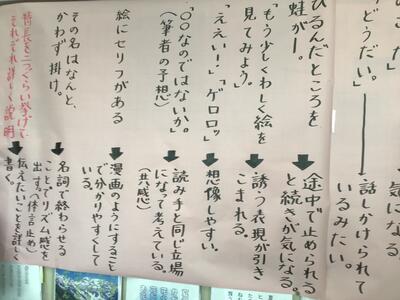 のこた。」
「どうだい。」
気になる。
話しかけられて
いるみたい。
ひるんだところを
蛙がー。
途中で止められる
と続きが気になる。
「もう少しくわしく絵を
見てみよう。」
誘う表現が引き
こまれる。
「ええい！」「ゲロロッ」
想像しやすい。
「〇〇なのではないか。」
(筆者の予想)
読み手と同じ立場
になって考えている。
(共感)
絵にセリフがある
漫画のようにすること
で分かりやすくして
いる。
その名はなんと、
かわず掛け。
名詞で終わらせる
ことでリズム感を
出す。(体言止め)
特長を二つくらい挙げて
それぞれ詳しく説明
伝えたいことを詳しく
書く。